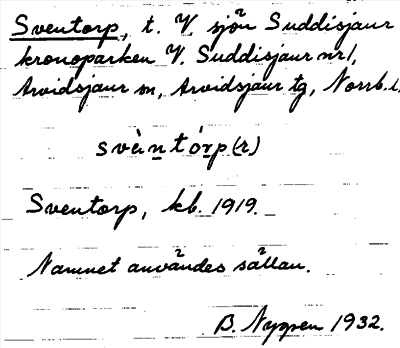 Sventorp, t. V. sjön Suddisjaur
kronoparken V. Suddisjaur nr 1,
Arvidsjaur sn, Arvidsjaur tg, Norrb. l.
svèntórp(r)
Sventorp, kb. 1919.
Namnet användes sällan.
B. Nygren 1932.